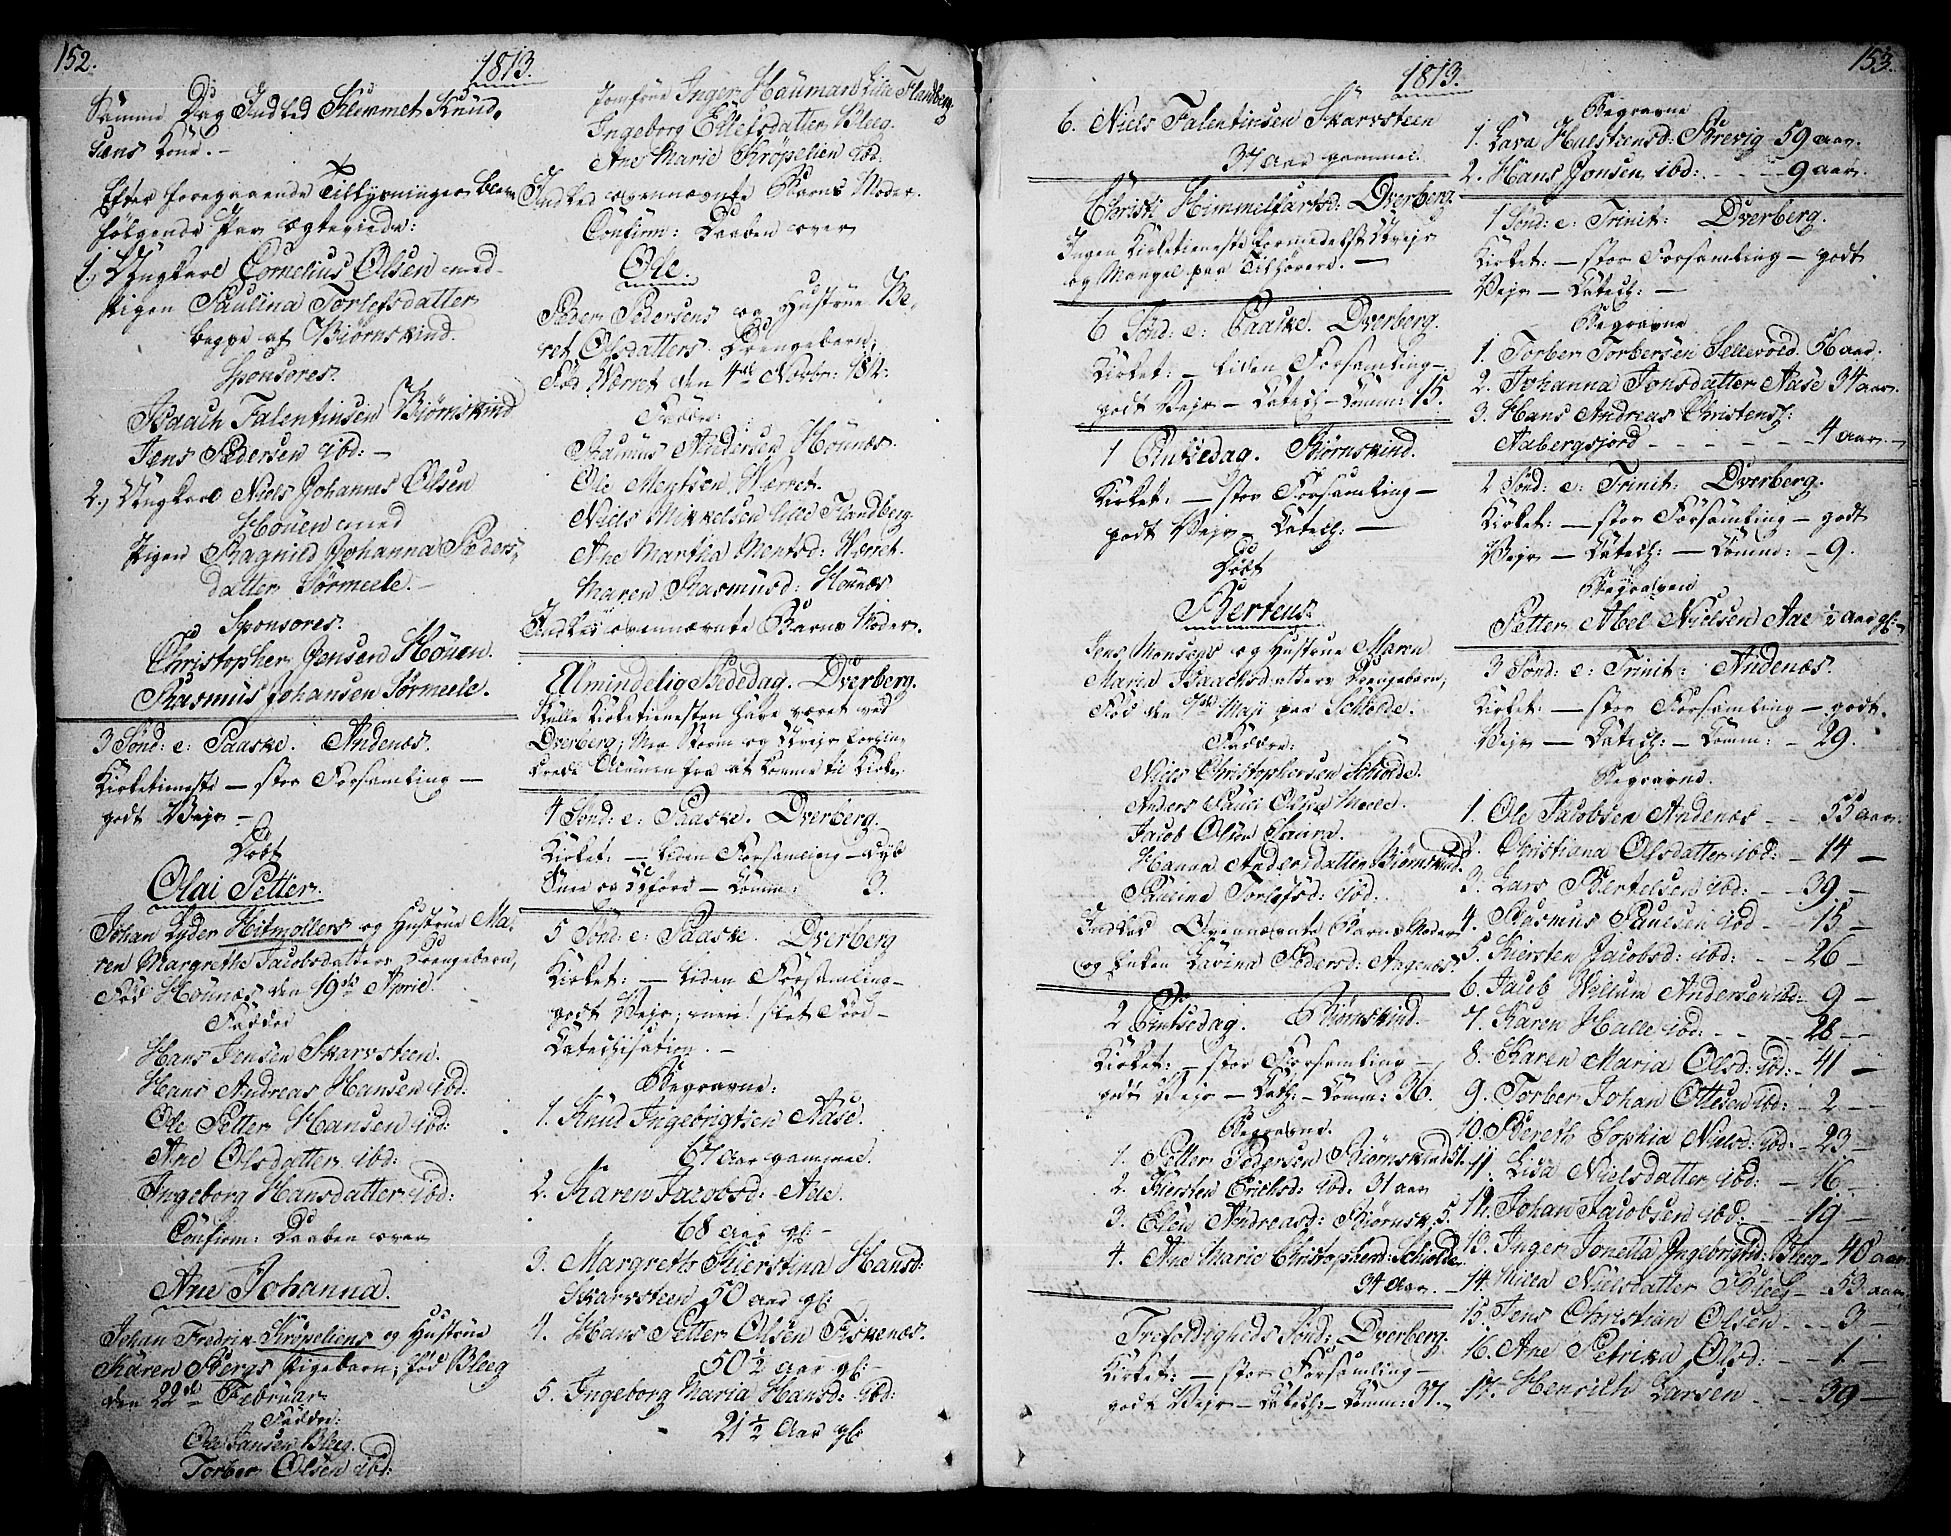 152.
1813.
Samme Dag Indled Klemmet Knud,
sens Kone. -
Efter foregaaende Tillysninger bleve
følgende Par ægteviede:
1., Ungkarl Cornelius Olsen med
Pigen Paulina Torlefsdatter
begge af Biørnskind.
Sponsores.
Isaach Falentinsen Biørnskind
Jens Pedersen ibd: -
2., Ungkarl Niels Johannes Olsen
Houen med
Pigen Ragnild Johanna Peders,
datter Sørmeele. -
Sponsores:
Christopher Jensen Höuen.
Rasmus Johansen Sørmeele.
3 Sønd: e: Paaske. Andenæs.
Kirketieneste - stor Forsamling -
godt Veir -
Døbt
Olai Petter.
Johan Lyder Hitmollers og Hustrue Ma,
ren Margrethe Jacobsdatters Drengebarn,
Fød Höunæs den 19de April.
Fadder
Hans Jensen Skarvsteen.
Hans Andreas Hansen ibd:
Ole Petter Hansen ibd:
Ane Olsdatter ibd:
Ingeborg Hansdatter ibd:
Confirm: Daaben over
Ane Johanna.
Johan Fredrik Kröpeliens og Hustrue
Karen Bergs Pigebarn; fød Bleeg
den 22de Februar
Fadder:
Ole Jansen Bleeg.
Torber Olsen ibd:
Jomfrue Inger Houman Lille Flandberg
Ingeborg Ellefsdatter Bleeg.
Ane Marie Kröpelien ibd:
Indled ovennævnte Barns Moder.
Confirm: Daaben over
Ole.
Peder Pedersens og Hustrue Be,
ret Olsdatters Drengebarn;
Fød Værret den 4de Novbr: 1812.
Faddr:
Rasmus Andersen Höunæs.
Ole Mentsen Værret.
Niels Mikkelsen Lille Flandberg.
Ane Martha Mentsd: Værret.
Maren Rasmusd: Höunæs
Indled ovennævnte Barns Moder.
Almindelig Bededag. Dverberg.
Skulle Kirketienesten have været ved
Dverberg, men Storm og Uveir forhin,
drede Almuen fra at komme til Kirke.
4 Sønd: e: Paaske. Dverberg.
Kirket: - liden Forsamling - dyb
Snee og Uføre - Comm: 3.
5 Sønd: e: Paaske. Dverberg
Kirket: - liden Forsamling -
godt Veir, men slet Ford -
Catechisation. -
Begravne:
1. Knud Ingebrigtsen Aase.
67 Aar gammel.
2. Karen Jacobsd: Aae.
68 Aar gl: -
3. Margreth Kierstina Hansd:
Skarvsteen 50 Aar gl:
4. Hans Petter Olsen Fiskenæs.
50 1/2 Aar gl: -
5. Ingeborg Maria Hansd: ibd:
21 1/2 Aar gl:
1813.
6. Niels Falentinsen Skarvsteen
37 Aar gammel.
Christi Himmelfartsd: Dverberg.
Ingen Kirketieneste formedelst Uveir
og Mangel paa Tilhørere. -
6 Sønd: e: Paaske. Dverberg.
Kirket: - liden Forsamling -
godt Veir - Catech - Comm: 15.
1 Pintsedag. Biørnskind.
Kirket: - stor Forsamling -
godt Veir - Catech: -
Døbt
Berteus.
Jens Monsens og Hustrue Maren
Maria Isaachsdatters Drengebarn,
Fød den 7de Maji paa Schiolde.
Faddere:
Niels Christophersen Schiolde.
Anders Pauli Olsen Meele.
Jacob Olsen Saura.
Hanna Andersdatter Biørnskind.
Paulina Torlefsd: ibd:
Indled Ovennævnte Barns Moder
og Enken Lavina Pedersd: Aagenæs.
2 Pintsedag. Biørnskind.
Kirket: - stor Forsamling -
godt Veir - Catch: - Comm: 36.
Begravne.
1. Petter Pedersen Biørnskind 51.
2. Kiersten Erichsd: ibd: 31 aar
3. Elen Andreasd: Biørnsk. 5.
4. Ane Marie Christophersd: Schiolde
34 Aar.
Trefoldigheds Sønd: Dverberg.
Kirket: - stor Forsamling -
godt Veir - Catech: - Comm: 37.
153.
Begravne
1. Lava Halstensd: Brevig 59 aar.
2. Hans Jonsen ibd: - - - 9 aar.
1 Sønd: e: Trinit: Dverberg.
Kirket: - stor Forsamling - godt
Veir - Catech: -
Begravne
1. Torber Torbersen Sellevold. 56 aar.
2. Johanna Jonsdatter Aase 34 aar.
3. Hans Andreas Christens:
Aabergsjord - - - - - 4 aar. -
2 Sønd: e: Trinit: Dverberg.
Kirket: - stor Forsamling - godt
Veir - Catech: - Comm: - 9.
Begraven
Petter Abel Nielsen Aae 1/2 aar gl:
3 Sønd: e: Trinit: Andenæs.
Kirket: - stor Forsamling - godt.
Veir - Catech: - Comm: - 29.
Begravne.
1. Ole Jacobsen Andenæs - - 55 aar.
2. Christiana Olsdatter ibd: - 14 -
3. Lars Bertelsen ibd: - - 39 -
4. Rasmus Paulsen ibd - - 15 -
5. Kiersten Jacobsd: ibd: - - 26 -
6. Jacob Willum Andersen ibd: 9 -
7. Karen Halle ibd: - - - 28 -
8. Karen Maria Olsd: ibd: - 41 -
9. Torber Johan Ottesen ibd: - 2 -
10. Bereth Sophia Nielsd: ibd: - 23 -
11. Lisa Nielsdatter ibd: - 16 -
12. Johan Jacobsen ibd: - - 19 -
13. Inger Jonetta Ingebrigtsd: Bleeg - 40 aar
14. Nilla Nielsdatter Bleeg - 53 aar
15. Jens Christian Olsen - - 3 -
16. Ane Petrika Olsd: - - 1 -
17. Henrich Larsen - - 39 -